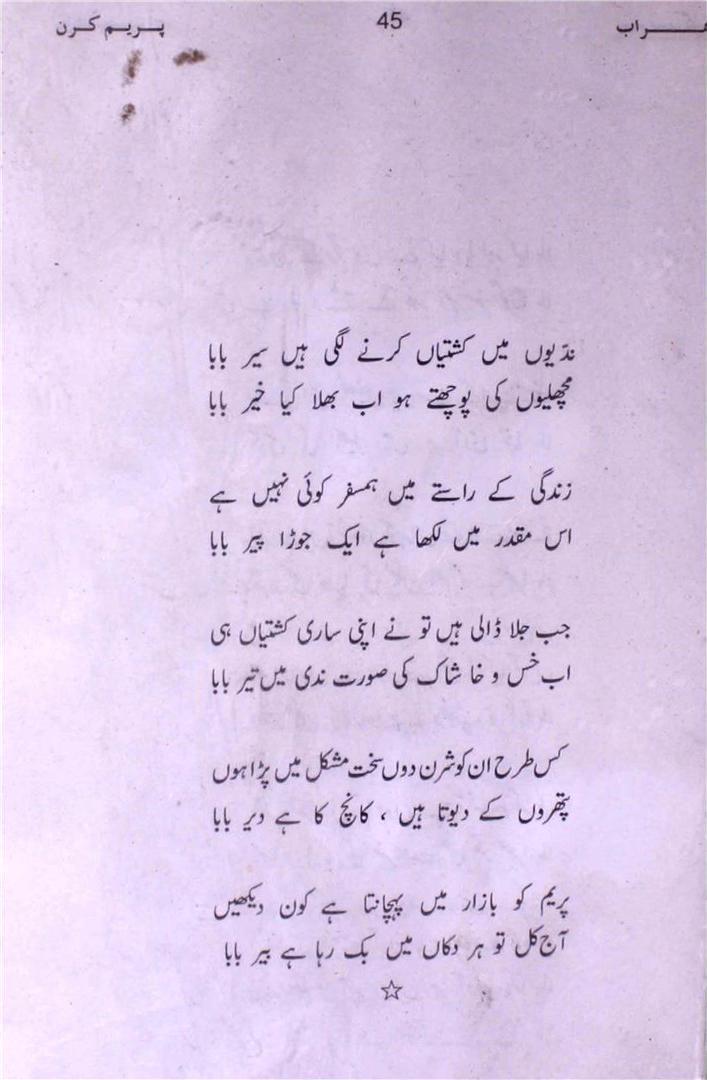 پریم کرن
45
ندّیوں میں کشتیاں کرنے لگی ہیں سیر بابا
مچھلیوں کی پوچھتے ہو اب بھلا کیا خیر بابا
زندگی کے راستے میں ہمسفر کوئی نہیں ہے
اس مقدر میں لکھا ہے ایک جوڑا پیر بابا
جب جلا ڈالی ہیں تو نے اپنی ساری کشتیاں ہی
اب خس و خا شاک کی صورت ندی میں تیر بابا
کس طرح ان کو شرن دوں سخت مشکل میں پڑا ہوں
پتھروں کے دیوتا ہیں ، کانچ کا ہے دیر بابا
پریم کو بازار میں پہچانتا ہے کون دیکھیں
آج کل تو ہر دکاں میں بک رہا ہے بیر بابا
☆